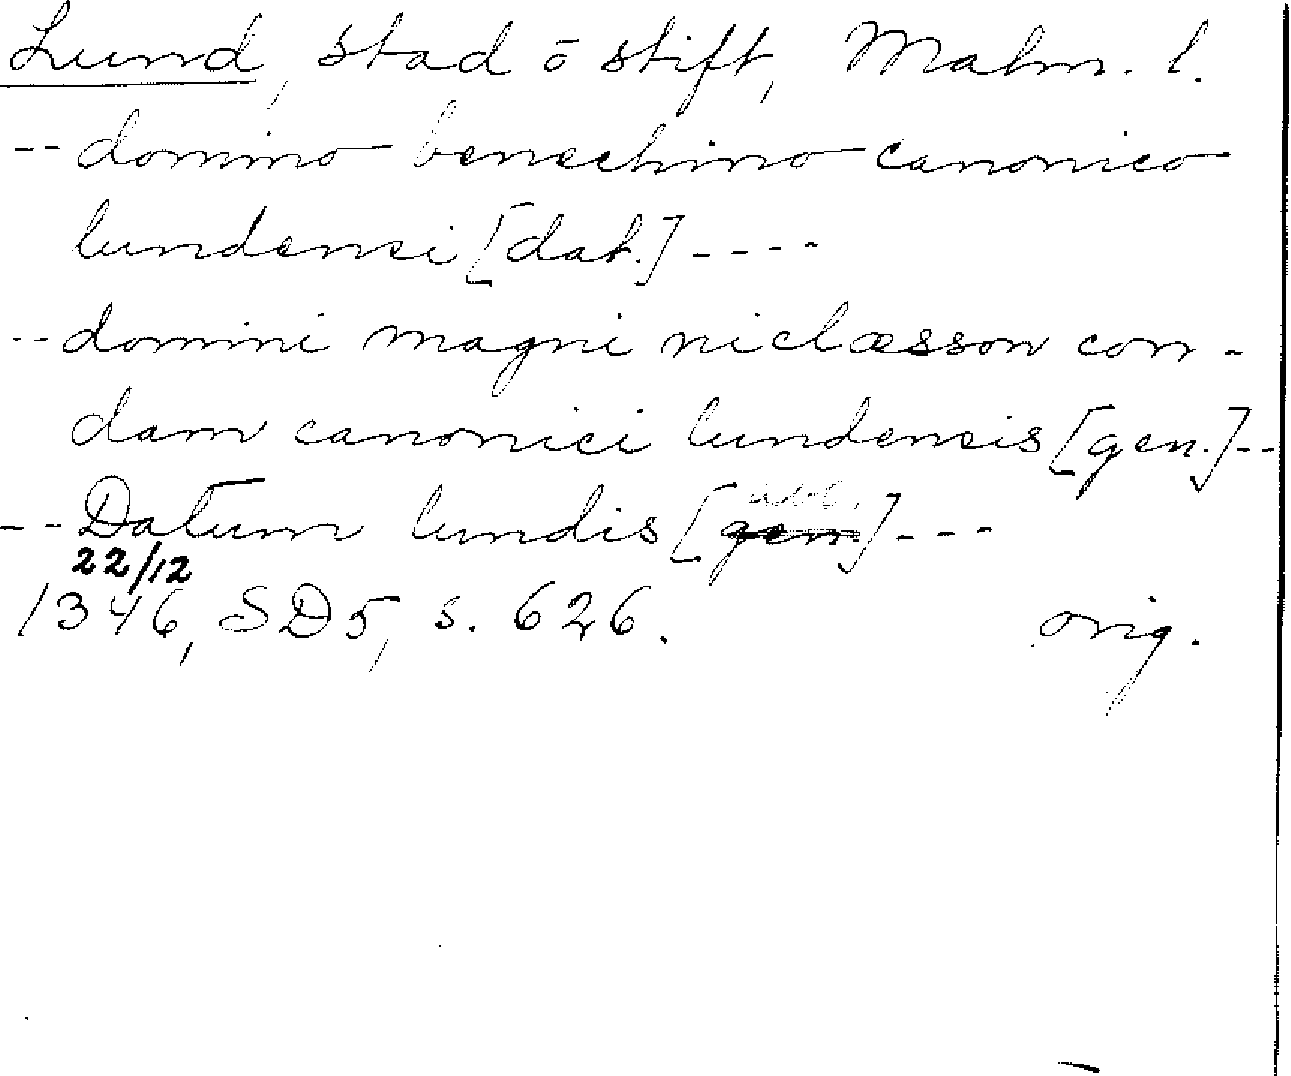 Lund, stad ō stift, Malm. l.
-- domino benechino canonico
lundensi [dat.] ----
-- domini magni niclæsson con-
dam canonici lundensis [gen.] --
-- Datum lundis [gen abl.] ---
22/12
1346, SD5, s. 626. orig.